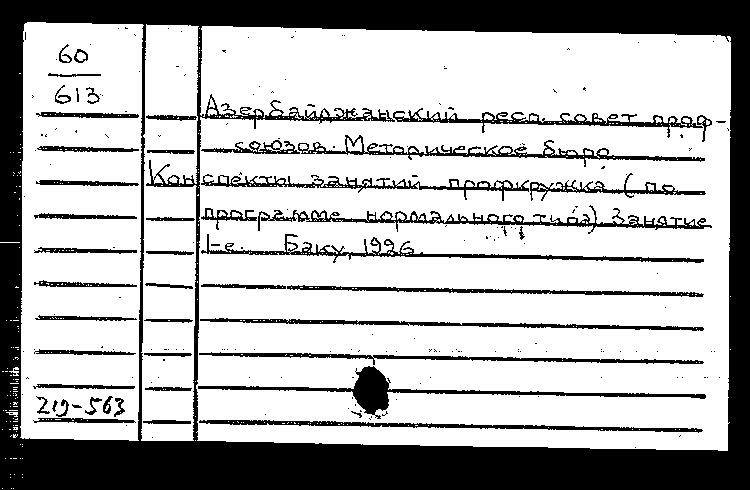 60
613
Азербайджанский респ. совет проф-
союзов. Методическое бюро
Конспекты занятий профкружка (по
программе нормального типа). Занятие
1-е. Баку, 1926.
219-563